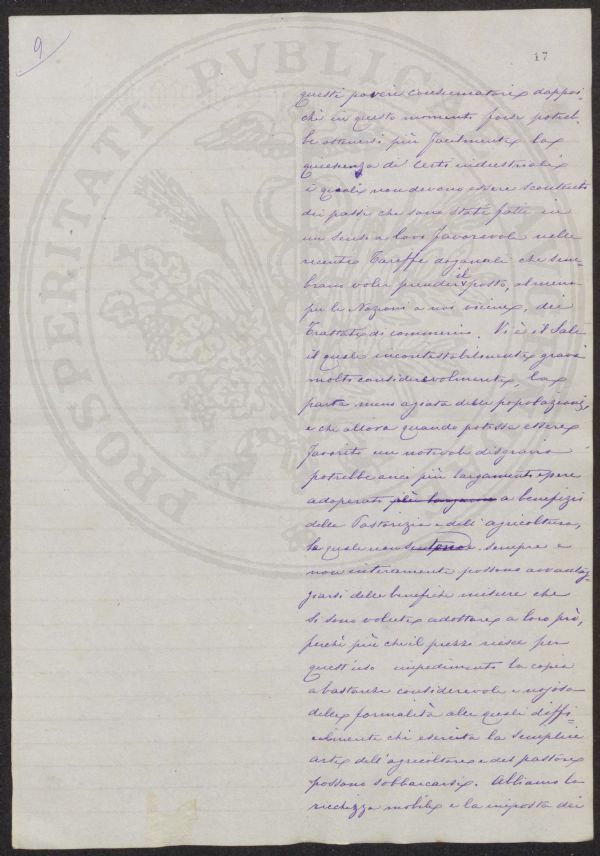 9
17
PROSPERITATI PVBLICAE
questi poveri conservatori dappoi-
chè in questo momento forse potreb-
be ottenersi più facilmente la
quiescenza de' certi industriali
i quali non devono essere scontenti
dei passi che sono stati fatti in
un senso a loro favorevole nelle
recenti Tariffe doganali che sem-
brano voler prender il posto, almeno
per le Nazioni a noi vicine, dei
Trattati di commercio. Vi è il Sale
il quale incontestabilmente grava
molto considerevolmente, la
parte meno agiata delle popolazioni,
e che allora quando potesse essere
favorito un notevole disgravio
potrebbe anci più largamente essere
adoperato più largamente a benefizio
della Pastorizia e dell'agricoltura,
le quali non sempre e
non interamente possono avvantag-
giarsi delle benefiche misure che
si sono volute adottare a loro prò,
perchè più che il prezzo riesce per
quest'uso impedimento la copia
abbastanza considerevole e nojosa
delle formalità alle quali diffi-
cilmente chi esercita la semplice
arte dell'agricoltore e del pastore
possono sobbarcarsi. Abbiamo la
ricchezza mobile e la imposta dei